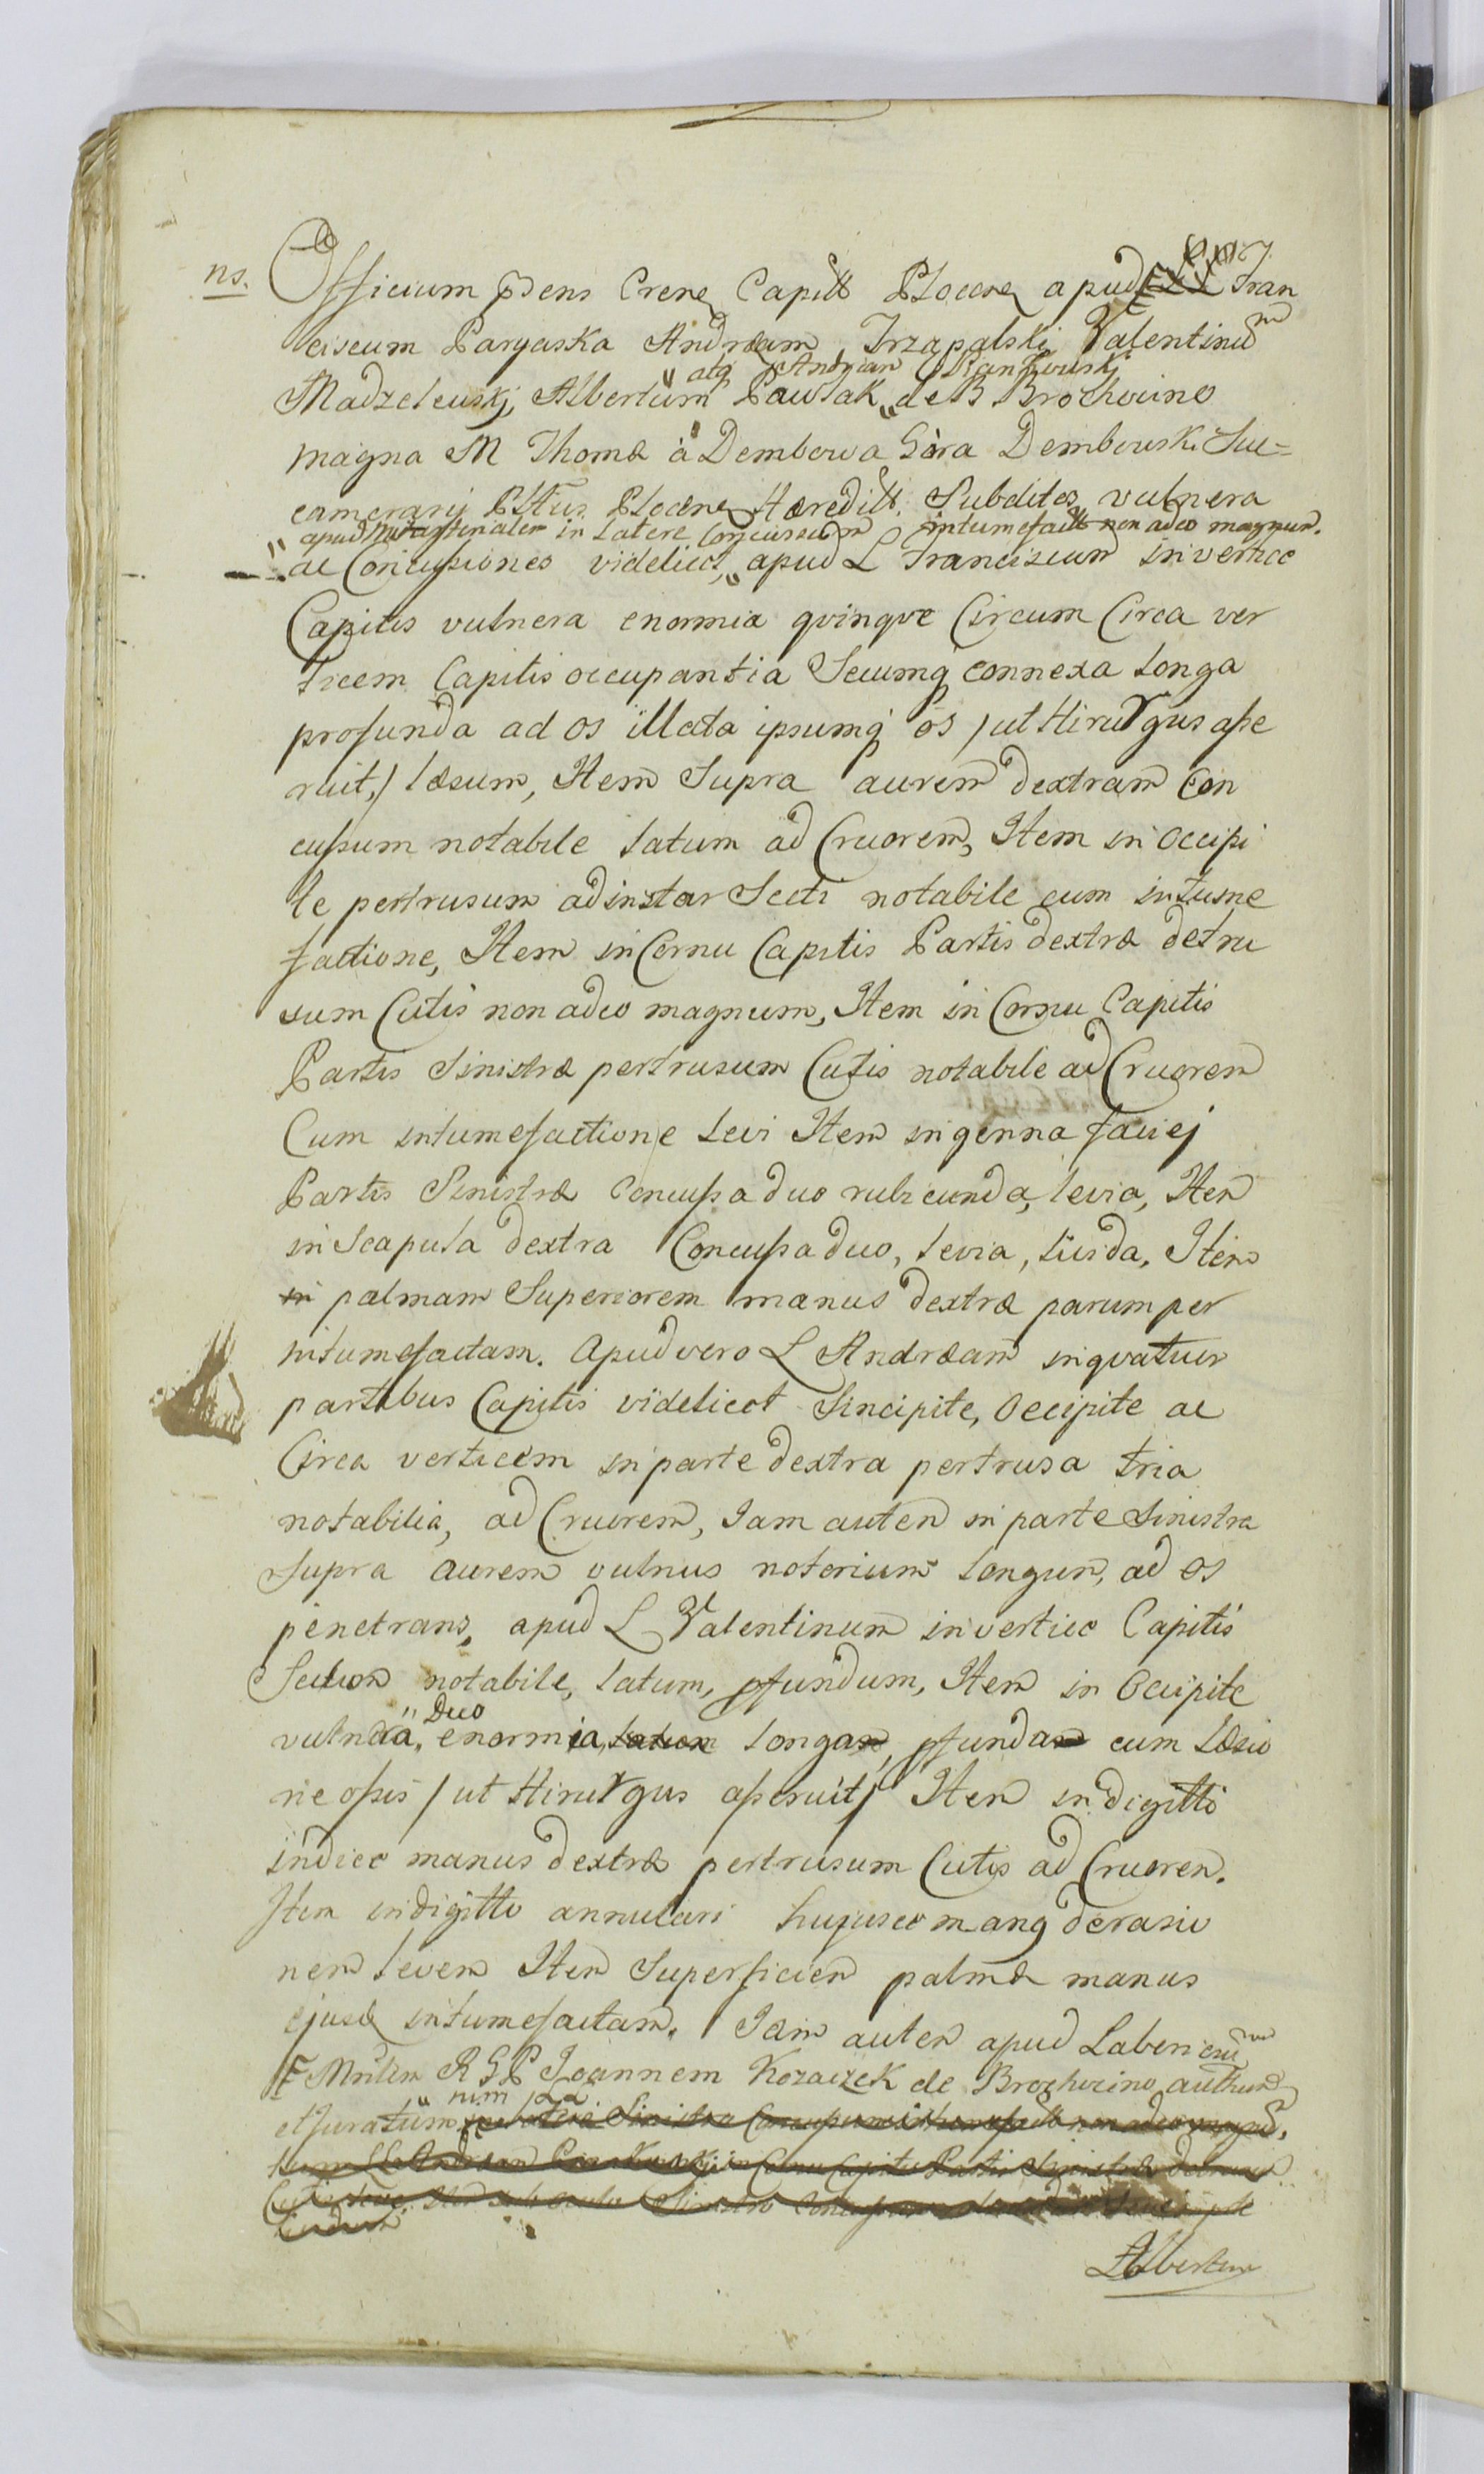 ns. Officium Pdens Crene Capitt Plocen apud Fran
ciscum Paryaska Andræam Trzapalski Valentinũm
atq Andream Piankowski
Madzelewskj, Albertum Pawlak de B Brochocino
magna M Thomæ à Dembowa Góra Dembowski Suc=
camerarij Pltus Plocen Hæredit Subditos vulnera
apud in latere Concussum intumefactt non adeo magnum.
ac Concusiones videlicet, apud L Franciscum in vertice
Capitis vulnera enormia qvinqve Circum Circa ver
ticem Capitis occupantia Secumq connexa longa
profunda ad os illata ipsumq os /ut Hirurgus asse
ruit,/ læsum, Item Supra aurem dextram Con
cussum notabile latum ad Cruorem, Item in Occipi
te pertrusum adinstar Secti notabile cum intume
factione, Item in Cornu Capitis Partis dextræ detru
sum Cutis non adeo magnum, Item in Cornu Capitis
Partis Sinistræ pertrusum Cutis notabile ad Cruorem
Cum intumefactione levi Item in genna faciej
Partis Sinistræ Concussa duo rubicunda, levia, Item
in Scapula dextra Concussa duo, levia, livida, Item
in palmam Superiorem manus dextræ parumper
intumefactam. Apud vero L Andræam in qvatuor
partibus Capitis videlicet Sincipite, Occipite ac
Circa verticem in parte dextra pertrusa tria
notabilia, ad Cruorem, Iam autem in parte Sinistra
Supra aurem vulnus notorium longum, ad os
penetrans, apud L Valentinum in vertice Capitis
Sectum notabile, latum, pfundum, Item in Occipite
Duo
vulnera, enormia, latum longam, pfundam cum læsio
ne ossis /ut Hirurgus asseruit/ Item in digitto
indice manus dextræ pertrusum Cutis ad Cruorem.
Item in digitto annulari hujusce manq derasio
nem levem Item Superficiem palmæ manus
ejusd intumefactam. Iam autem apud Labericsũm
Mnlem R G P Joannem Kozaczek de Brochocino authum
et Juratum Sinistra non adeo magnũ.
Item L Andream Piankowski in Cornu Capitis Partis Sinistræ
Cutis Sinistro
Albertum